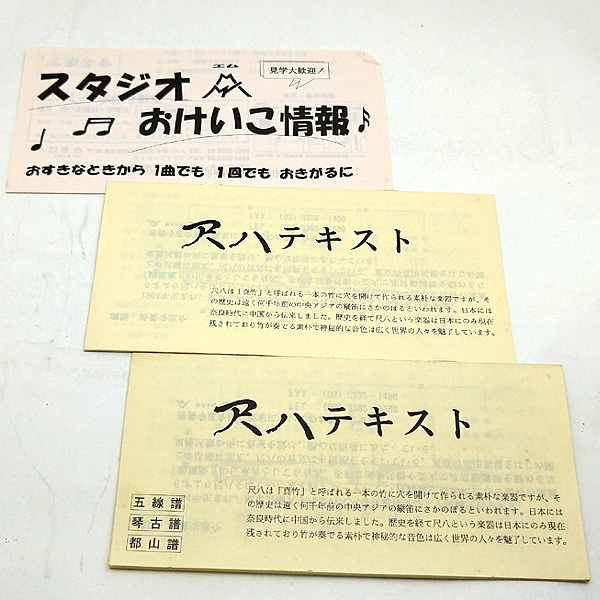 エム
見学大歓迎!
スタジオ
おけいこ情報
おすきなときから 1曲でも 1回でも おきがるに
尺八テキスト
尺八は「真竹」と呼ばれる一本の竹に穴を開けて作られる素朴な楽器ですが、そ
の歴史は遠く何千年前の中央アジアの縦笛にさかのぼるといわれます。日本には
奈良時代に中国から伝来しました。歴史を経て尺八という楽器は日本にのみ現在
残されており竹が奏でる素朴で神秘的な音色は広く世界の人々を魅了しています。
尺八テキスト
五線譜
琴古譜
都山譜
尺八は「真竹」と呼ばれる一本の竹に穴を開けて作られる素朴な楽器ですが、そ
の歴史は遠く何千年前の中央アジアの縦笛にさかのぼるといわれます。日本には
奈良時代に中国から伝来しました。歴史を経て尺八という楽器は日本にのみ現在
残されており竹が奏でる素朴で神秘的な音色は広く世界の人々を魅了しています。